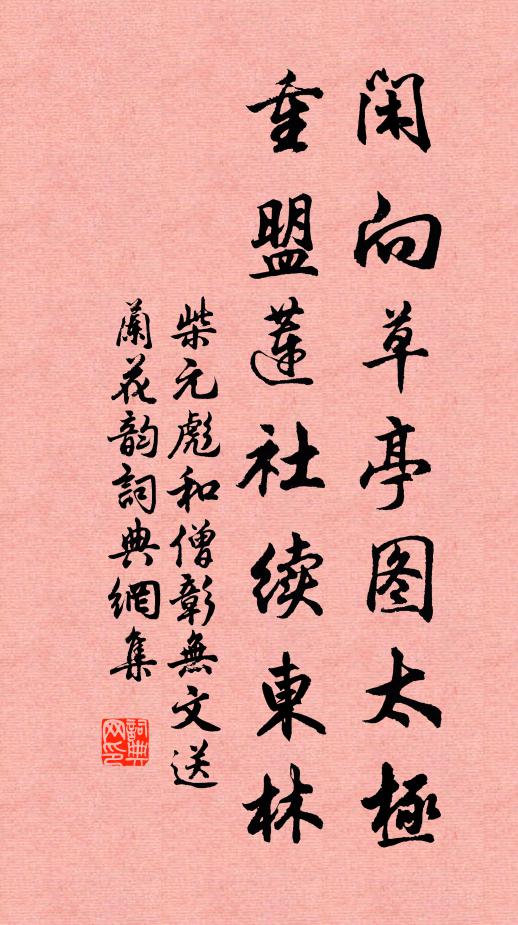 闲向草亭图太極
重盟蓮社续東林
柴元彪和僧彰無文送
蘭花韵詞典網集
詞典网印